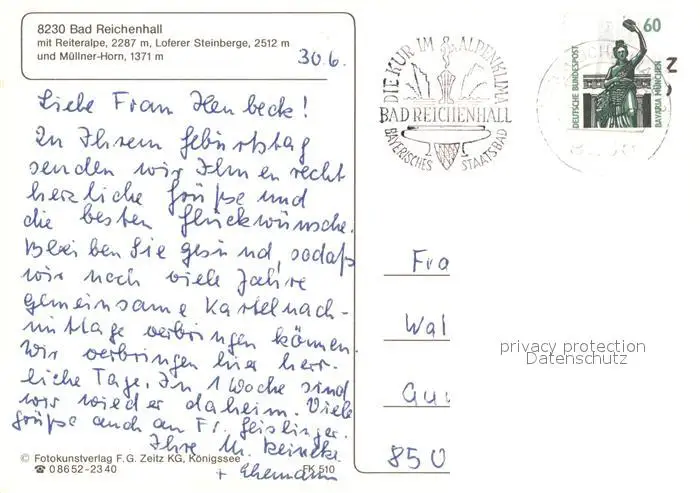 8230 Bad Reichenhall
mit Reiteralpe, 2287 m, Loferer Steinberge, 2512 m
und Müllner-Horn, 1371 m
30.6.
Liebe Frau Henbeck!
Zu Ihrem Geburtstag
senden wir Ihnen recht
herzliche Grüße und
die besten Glückwünsche.
Bleiben Sie gesund, sodaß
wir noch viele Jahre
gemeinsame Kartelnach-
mittage verbringen können.
Wir verbringen hier herr-
liche Tage. In 1 Woche sind
wir wieder daheim. Viele
Grüße auch an Fr. Geislinger.
Ihre M. Reineke
+ Ehemann
© Fotokunstverlag F. G. Zeitz KG, Königssee
☎ 08652-2340
FK 510
DIE KUR IM ALPENKLIMA
BAD REICHENHALL
BAYERISCHES STAATSBAD
60
DEUTSCHE BUNDESPOST
BAVARIA MÜNCHEN
Fra
Wal
850
privacy protection
Datenschutz